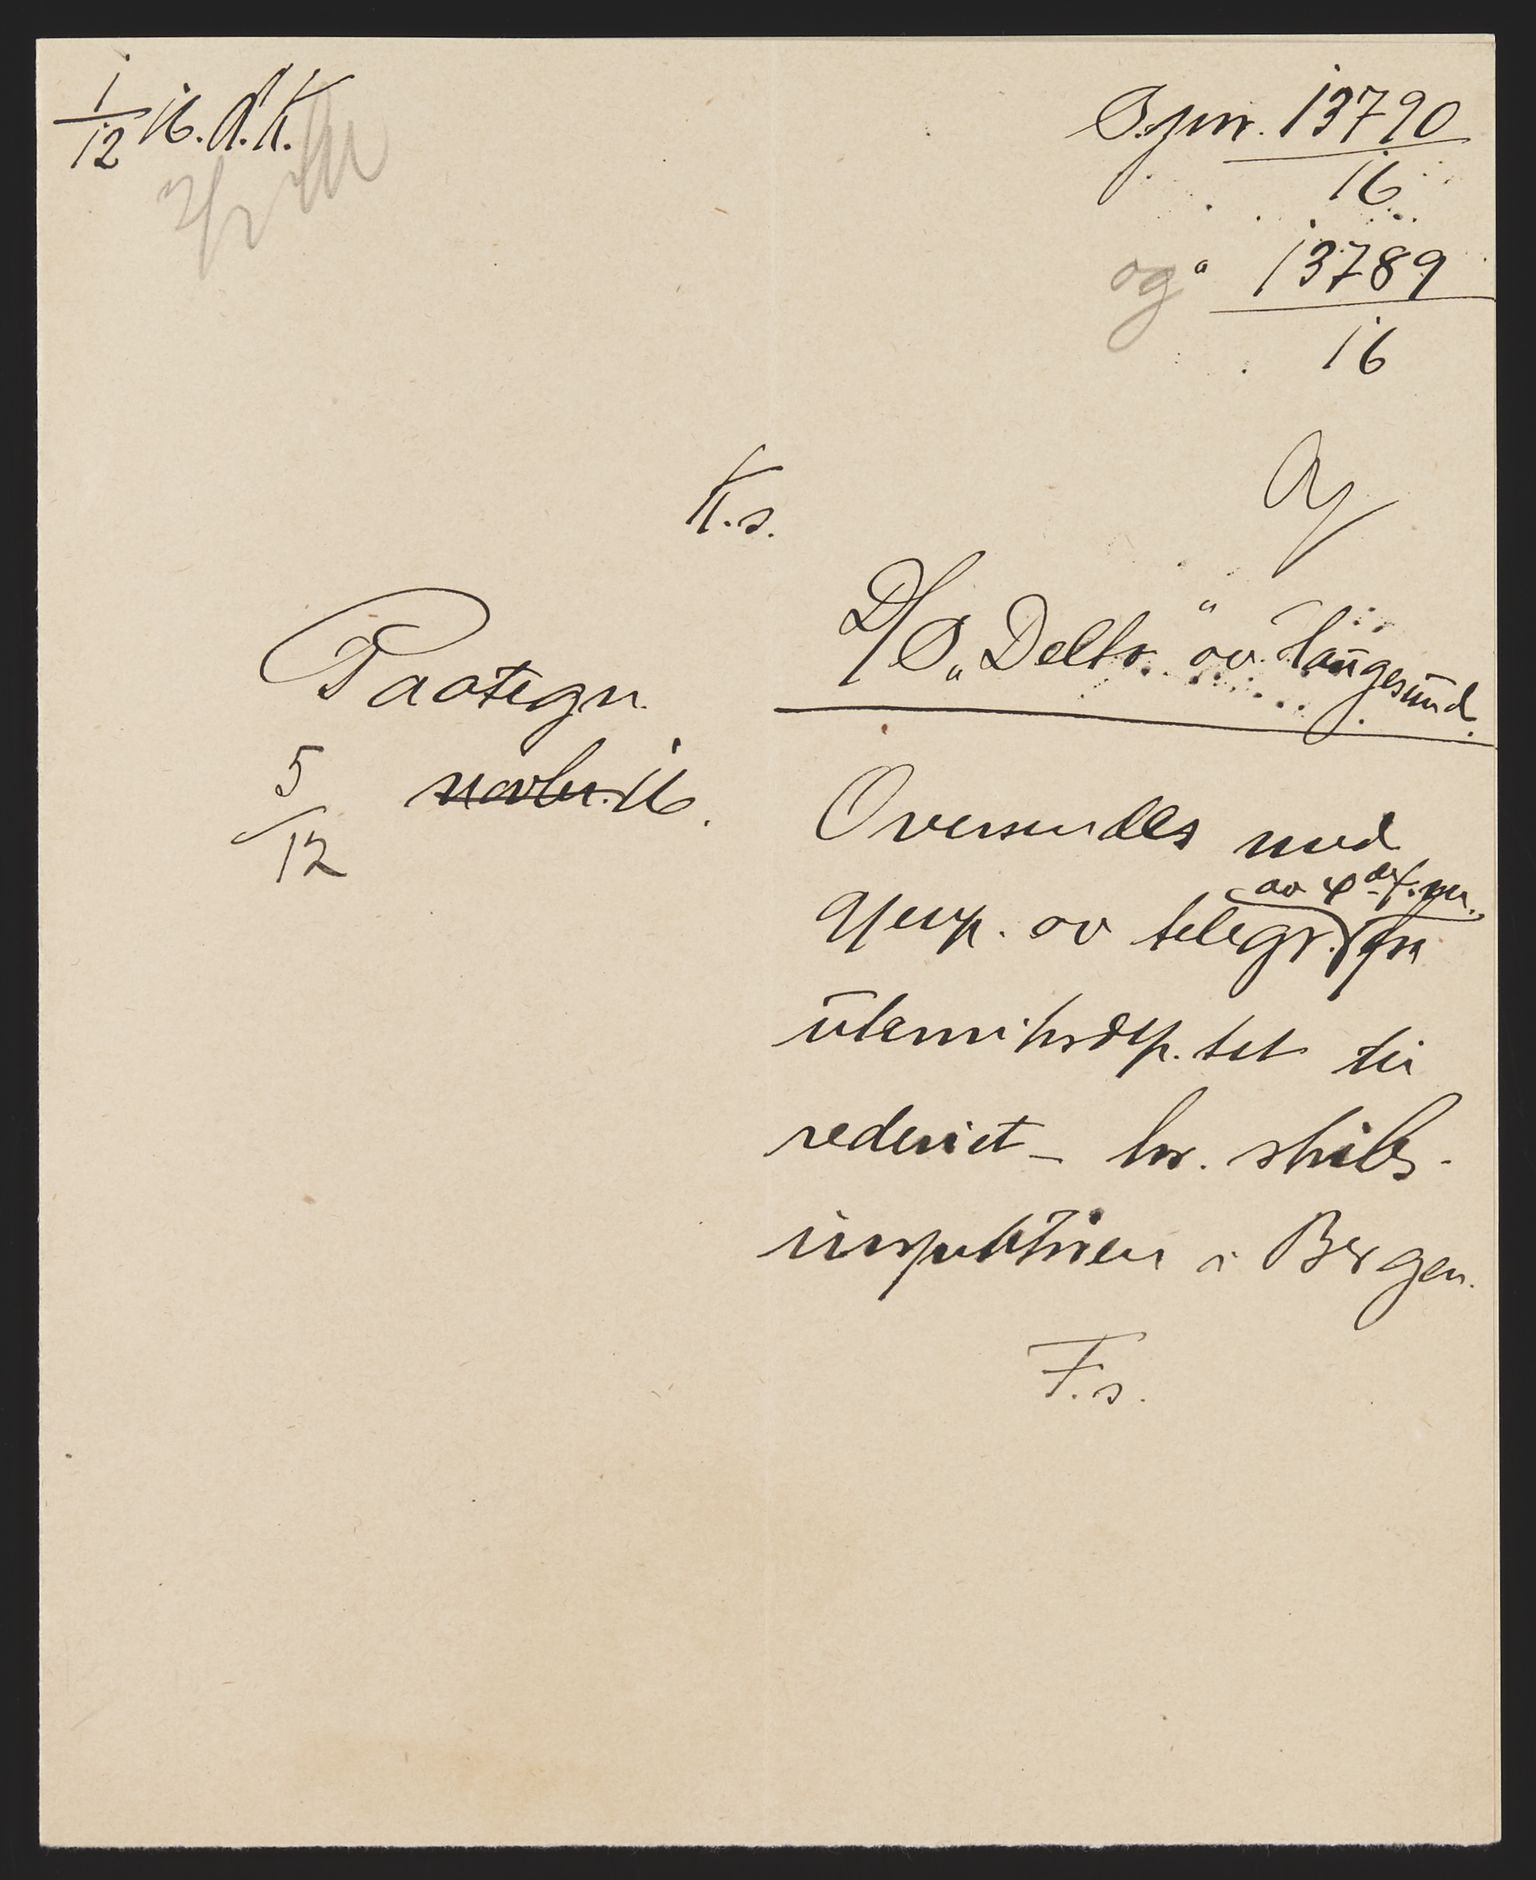 1/12 16. A.K.
S.jnr. 13790
16
og " 13789
16
K.s.
D/S „Delto" av Haugesund.
Paategn.
5/12 novbr. 16.
Oversendes med
gjenp. av telegr. fra
av 4de f.m.
utenriksdep.tet til
rederiet – hr. skibs-
inspektøren i Bergen.
F.s.